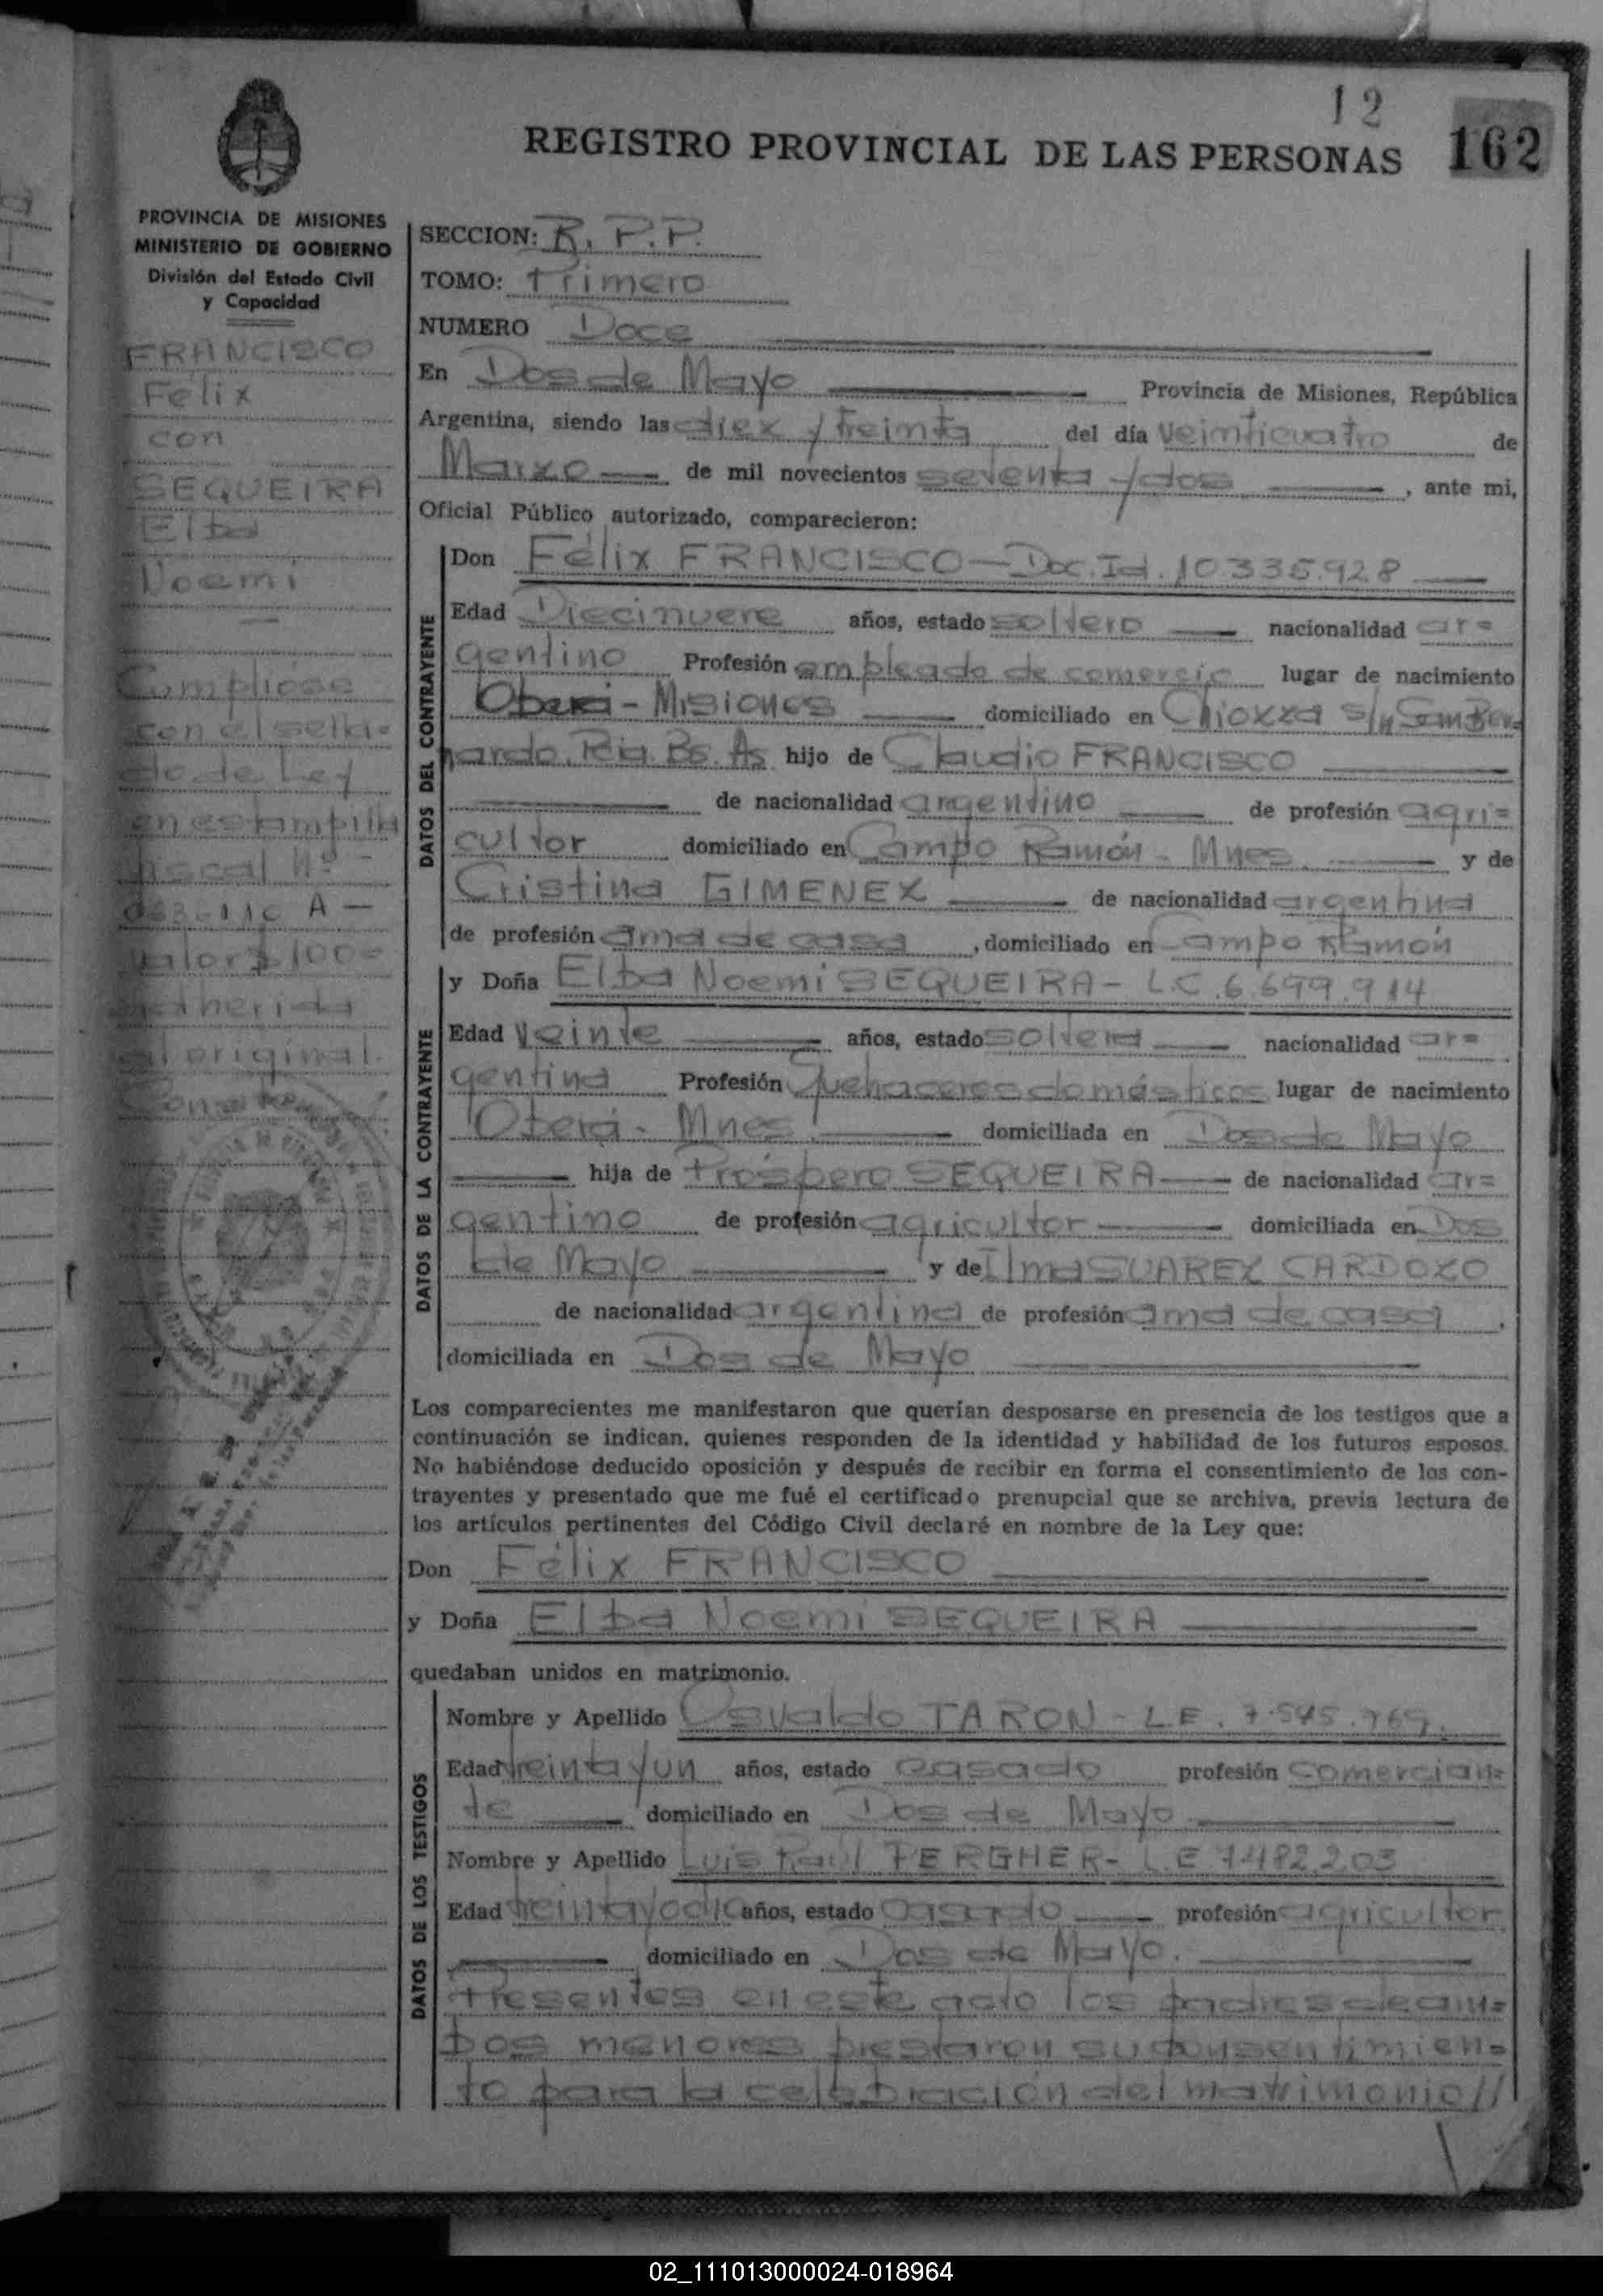 12
REGISTRO PROVINCIAL DE LAS PERSONAS 162
PROVINCIA DE MISIONES
MINISTERIO DE GOBIERNO
División del Estado Civil
y Capacidad
FRANCISCO
Félix
con
SEQUEIRA
Elba
Noemi
Cumplióse
con el sella=
do de Ley
en estampilla
fiscal Nº
A
valor $ 100=
adherida
al original.
Conste
SECCION: R. P. P.
TOMO: Primero
NUMERO Doce
En Dos de Mayo Provincia de Misiones, República
Argentina, siendo las diez y treinta del día veinticuatro de
Marzo de mil novecientos setenta y dos, ante mi,
Oficial Público autorizado, comparecieron:
DATOS DEL CONTRAYENTE
Don Félix FRANCISCO - Doc. Id. 10.335.928
Edad Diecinueve años, estado soltero nacionalidad ar=
gentino Profesión empleado de comercio lugar de nacimiento
Oberá - Misiones domiciliado en Chiozza s/n San Ber=
nardo. Pcia. Bs. As hijo de Claudio FRANCISCO
de nacionalidad argentino de profesión agri=
cultor domiciliado en Campo Ramón - Mnes. y de
Cristina GIMENEZ de nacionalidad argentina
de profesión ama de casa, domiciliado en Campo Ramón
DATOS DE LA CONTRAYENTE
y Doña Elba Noemi SEQUEIRA - L.C. 6.699.914
Edad veinte años, estado soltera nacionalidad ar=
gentina Profesión Quehaceres domésticos lugar de nacimiento
Oberá - Mnes. domiciliada en Dos de Mayo
hija de Próspero SEQUEIRA de nacionalidad ar=
gentino de profesión agricultor domiciliada en Dos
de Mayo y de Ilma SUAREZ CARDOZO
de nacionalidad argentina de profesión ama de casa,
domiciliada en Dos de Mayo
Los comparecientes me manifestaron que querían desposarse en presencia de los testigos que a
continuación se indican, quienes responden de la identidad y habilidad de los futuros esposos.
No habiéndose deducido oposición y después de recibir en forma el consentimiento de los con-
trayentes y presentado que me fué el certificado prenupcial que se archiva, previa lectura de
los artículos pertinentes del Código Civil declaré en nombre de la Ley que:
Don Félix FRANCISCO
y Doña Elba Noemi SEQUEIRA
quedaban unidos en matrimonio.
DATOS DE LOS TESTIGOS
Nombre y Apellido Osvaldo TARON - L.E. 7.545.769.
Edad treinta y un años, estado casado profesión comercian=
te domiciliado en Dos de Mayo
Nombre y Apellido Luis Raúl PERGHER - L.E 7482.203
Edad treinta y años, estado casado profesión agricultor
domiciliado en Dos de Mayo.
Presentes en este acto los padres de am=
bos menores prestaron su consentimien=
to para la celebración del matrimonio//
02_111013000024-018964